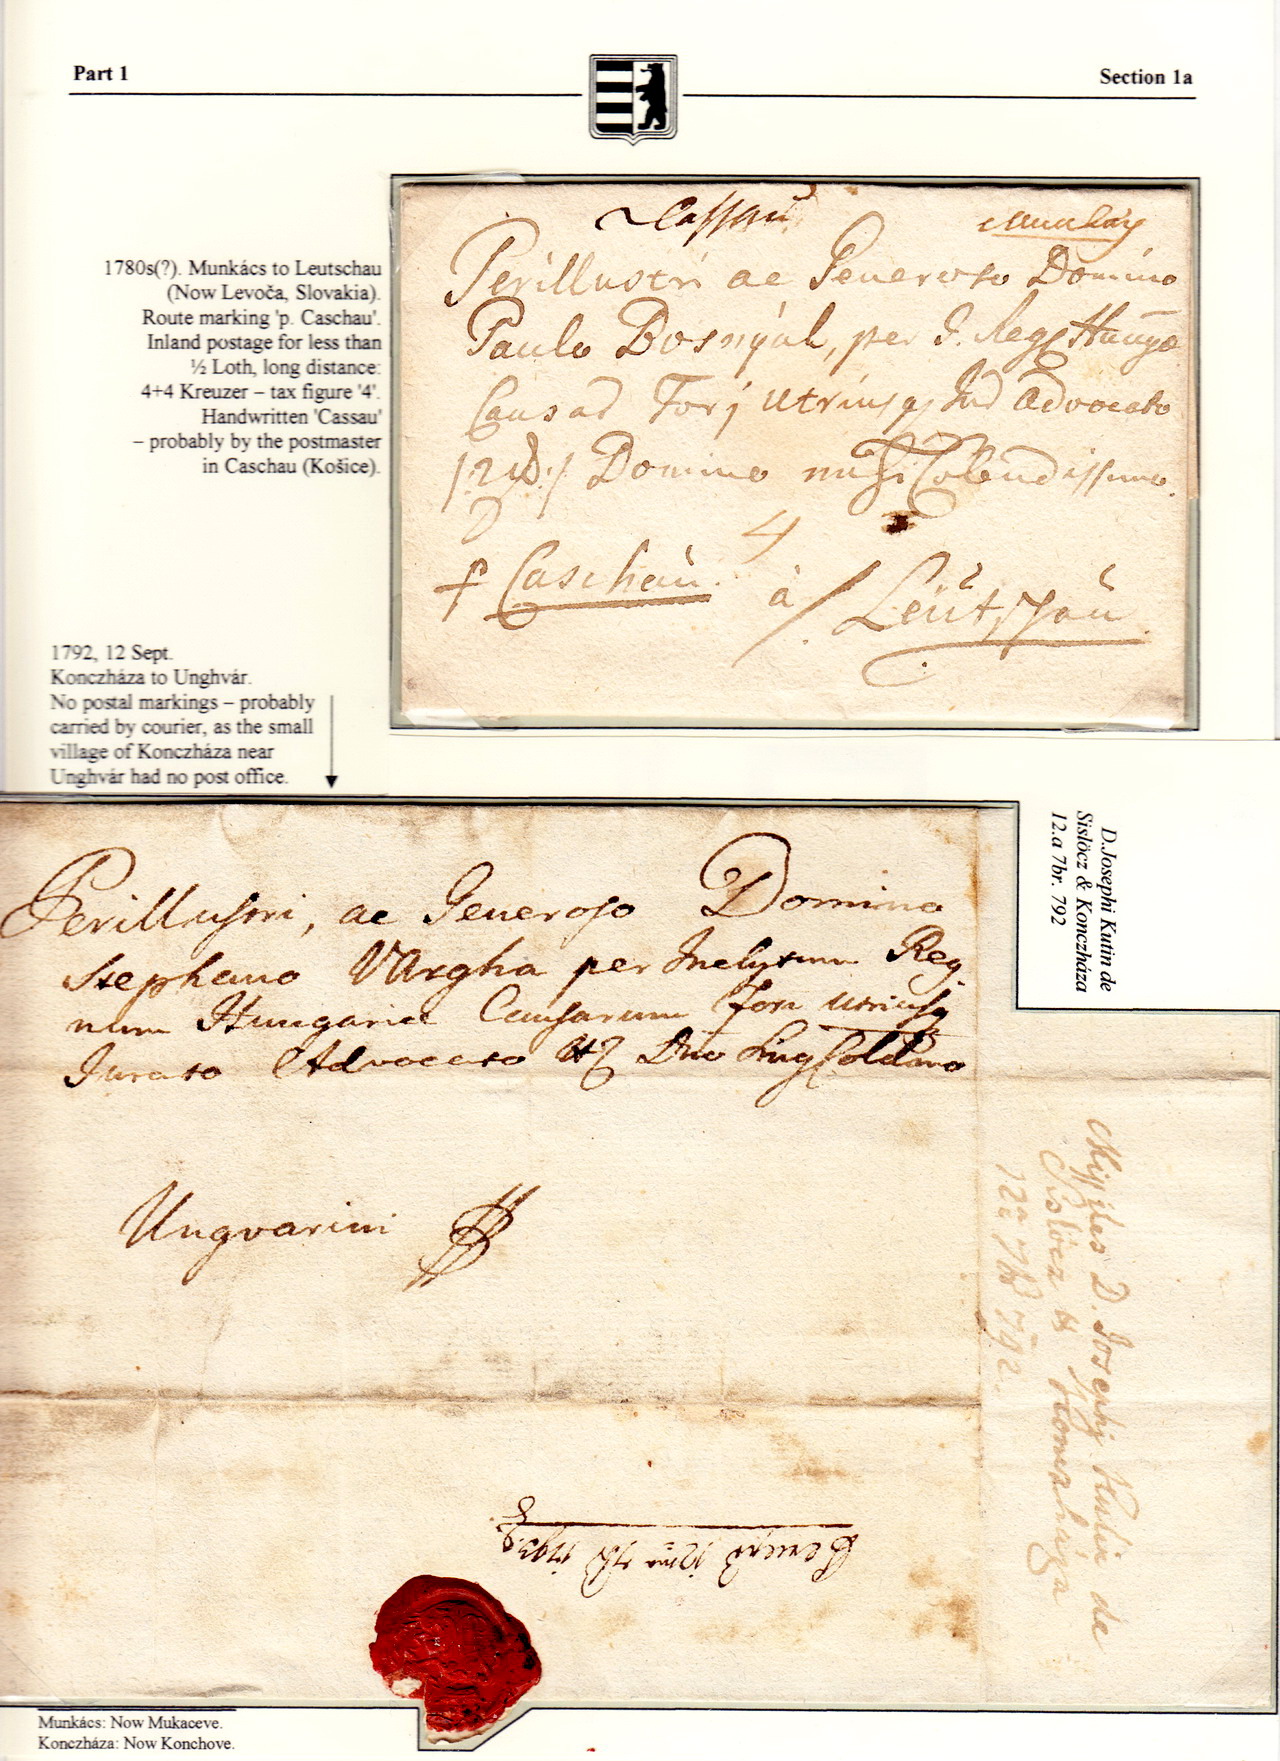 Part 1
Section 1a
1780s(?). Munkács to Leutschau
(Now Levoča, Slovakia).
Route marking 'p. Caschau'.
Inland postage for less than
½ Loth, long distance:
4+4 Kreuzer – tax figure '4'.
Handwritten 'Cassau'
– probably by the postmaster
in Caschau (Košice).
Cassau
Munkacs
Perillustri ac Generoso Domino
Paulo Bosnyák, per I. Reg Hung
Causar Forj utriusq Jud Advocato
Domino mihi Colendissimo.
4
p Caschau. à /. Leütschau
1792, 12 Sept.
Konczháza to Unghvár.
No postal markings – probably
carried by courier, as the small
village of Konczháza near
Unghvár had no post office.
D.Josephi Kutin de
Sislöcz & Konczháza
12.a 7br. 792
Perillustri, ac Generoso Domino
Stephano Vargha per Inclytum Reg
num Hungariae Causarum Fori utriusq
Jurato Advocato Dno
Ungvarini
D. Josephj Kutin de
Sislöcz et Konczháza
12a 7br 792.
12ma 7br 1792
Munkács: Now Mukaceve.
Konczháza: Now Konchove.